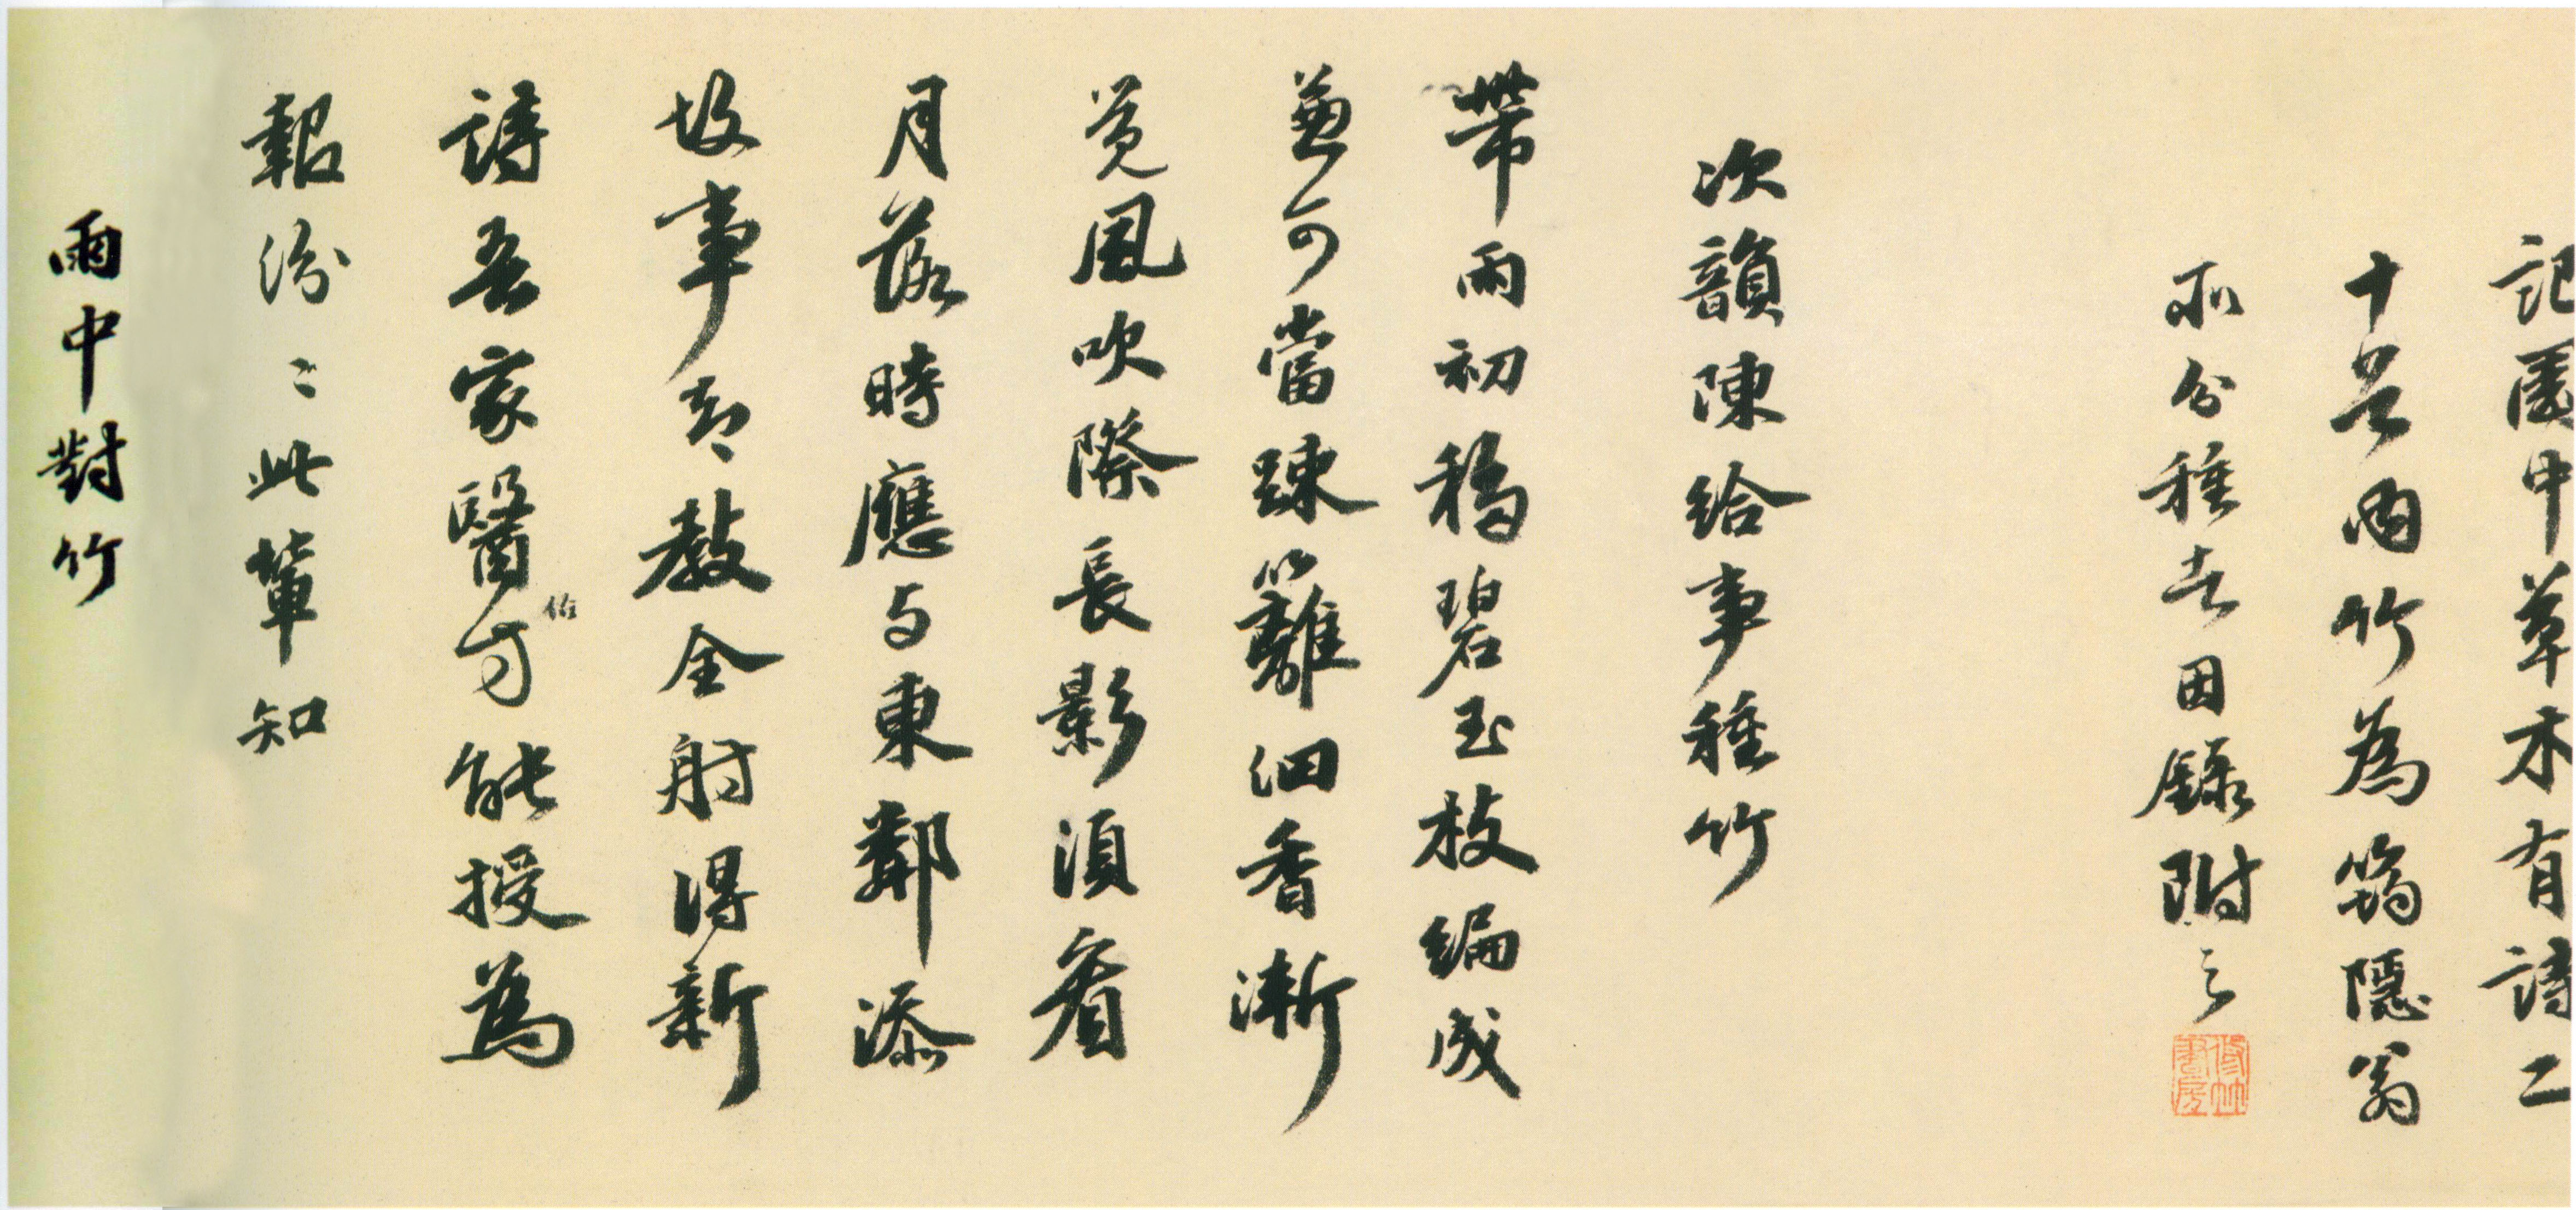 記園中草木有詩二
十首內竹為筠隱翁
所分種者因錄附之
修竹書房
次韻陳給事種竹
帶雨初移碧玉枝編成
兼可當踈籬細香漸
覺風吹際長影須看
月落時應与東鄰添
故事却教全射得新
詩吾家醫俗方能授為
報汾〻此輩知
雨中對竹